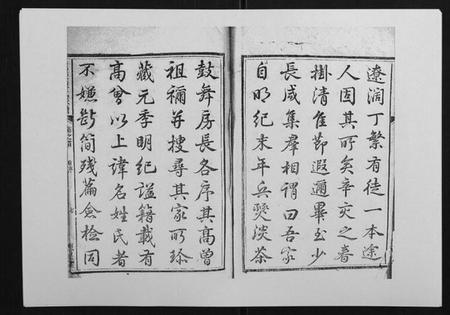 遼濶丁繁有徒一本途
人因其所矣辛亥之春
掛清隹節遐邇畢至少
長咸集羣相謂曰吾家
自明紀末年兵燹淡茶
鼓舞房長各序其高曾
祖禰并搜尋其家所珍
藏元季明紀謚籍載有
高曾以上諱名姓氏者
不嫌斷简残篇僉檢同